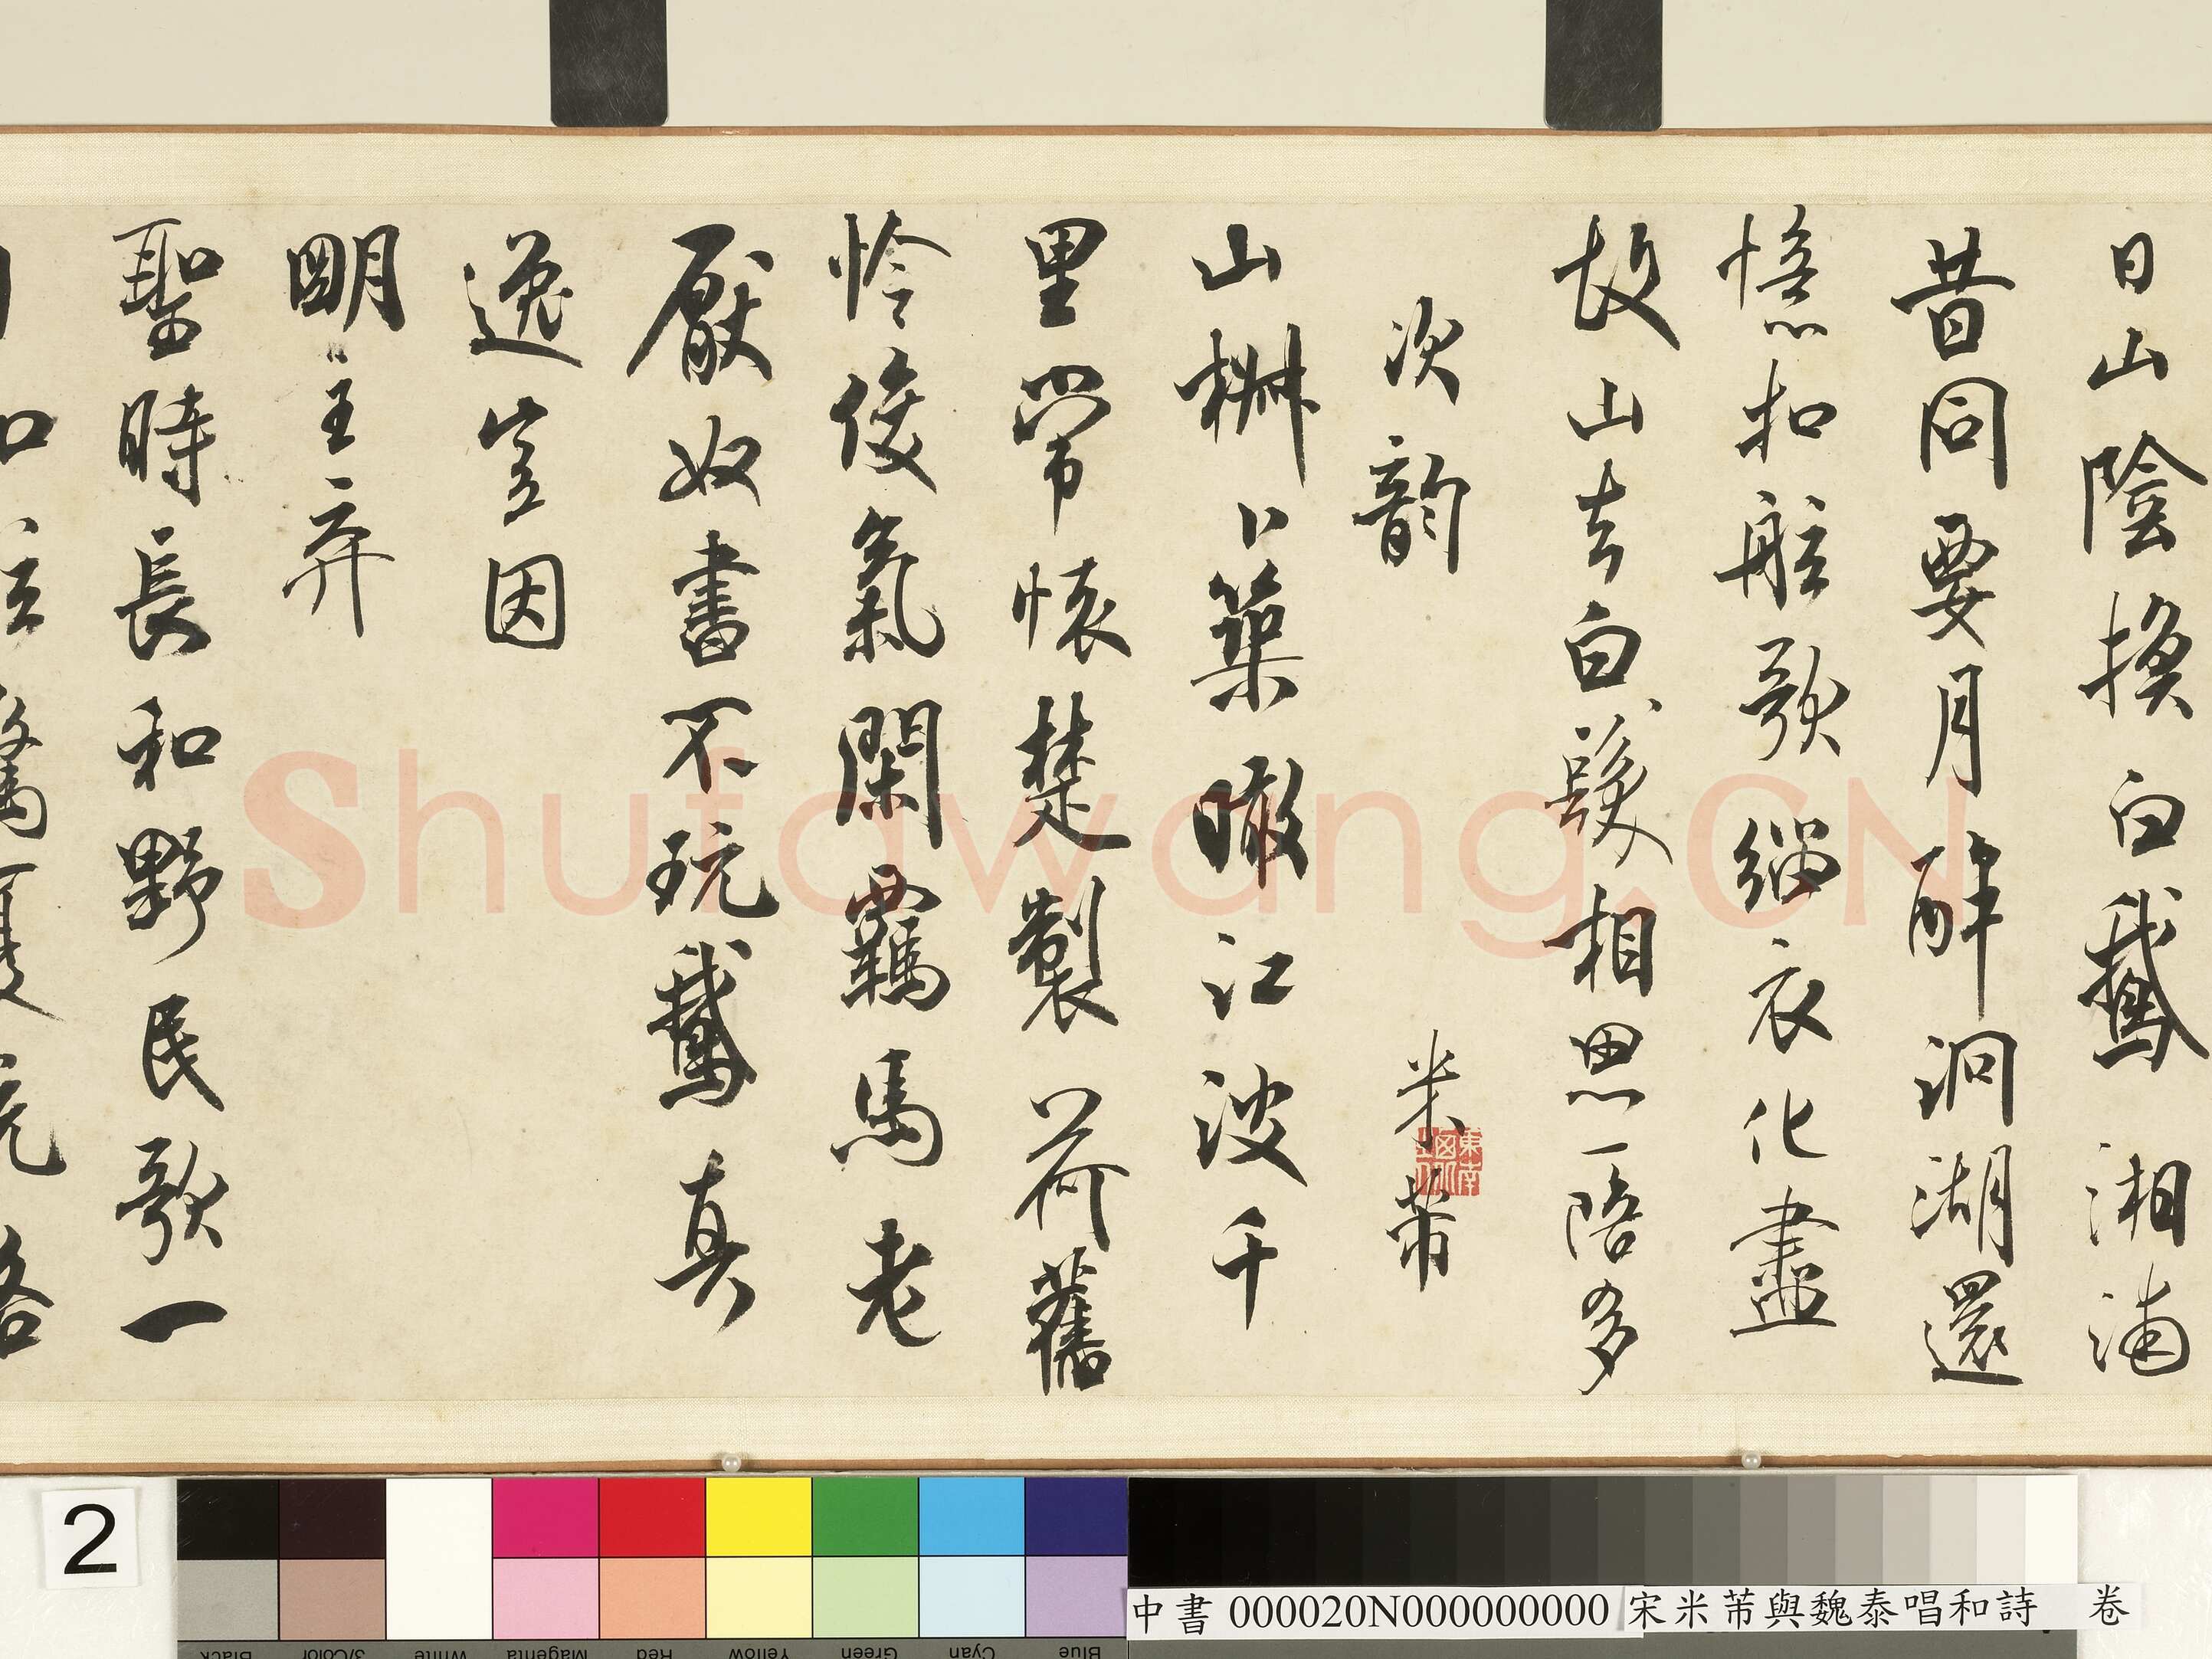 日山陰換白鵝湘浦
昔同要月醉洞湖還
憶扣舷歌緇衣化盡
故山去白髮相思一陪多
次韵 米芾
山椒卜築瞰江波千
里常懷楚製荷舊
怜俊氣閑羈馬老
厭奴書不玩鵝真
逸豈因
明主弃
聖時長和野民歌一
Shufawang.CN
2
中書 000020N000000000 宋米芾與魏泰唱和詩 卷
Black
3/Color
White
Magenta
Red
Yellow
Green
Cyan
Blue